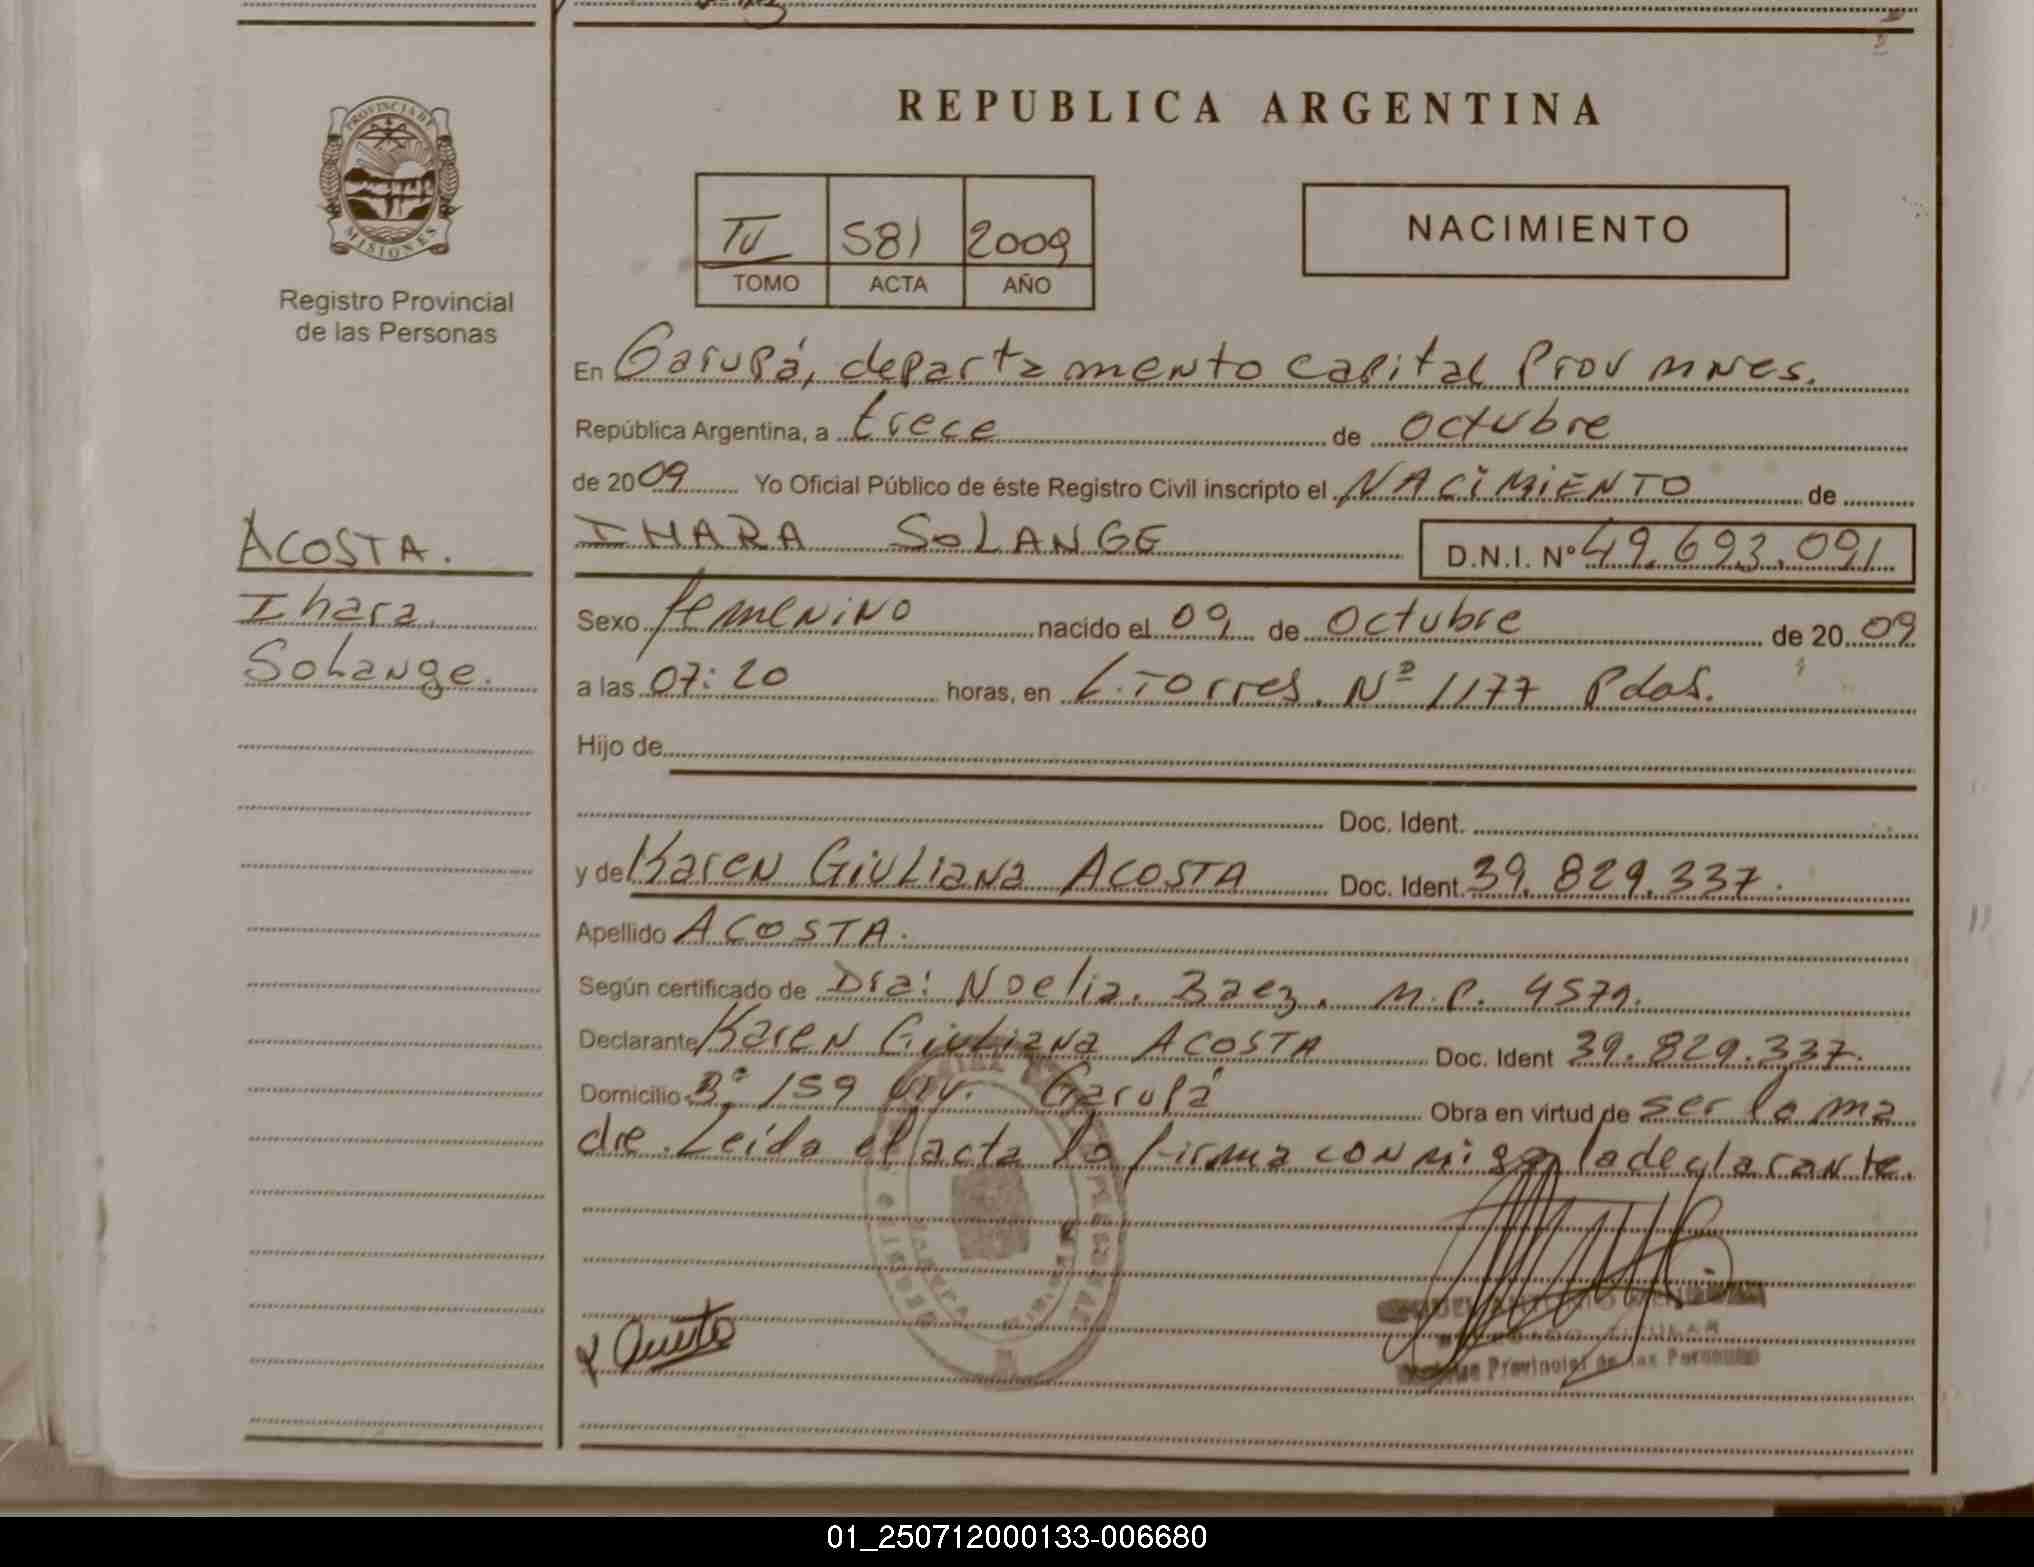 REPUBLICA ARGENTINA
PROVINCIA DE
MISIONES
Registro Provincial
de las Personas
TU 581 2009
TOMO ACTA AÑO
NACIMIENTO
En Garupá, departamento capital Prov mnes.
República Argentina, a trece de octubre
de 2009 Yo Oficial Público de éste Registro Civil inscripto el NACIMIENTO de
ACOSTA.
Ihara
Solange.
IHARA SOLANGE D.N.I. Nº 49.693.091
Sexo femenino nacido el 09 de Octubre de 2009
a las 07:20 horas, en L. Torres. Nº 1177 Pdas.
Hijo de
Doc. Ident.
y de Karen Giuliana ACOSTA Doc. Ident. 39.829.337.
Apellido ACOSTA.
Según certificado de Dra: Noelia. Baez. M.P. 4579.
Declarante Karen Giuliana ACOSTA Doc. Ident 39.829.337.
Domicilio Bº 159 viv. Garupá Obra en virtud de ser la ma
dre. Leída el acta la firma conmigo la declarante.
Provincial de las Personas
01_250712000133-006680